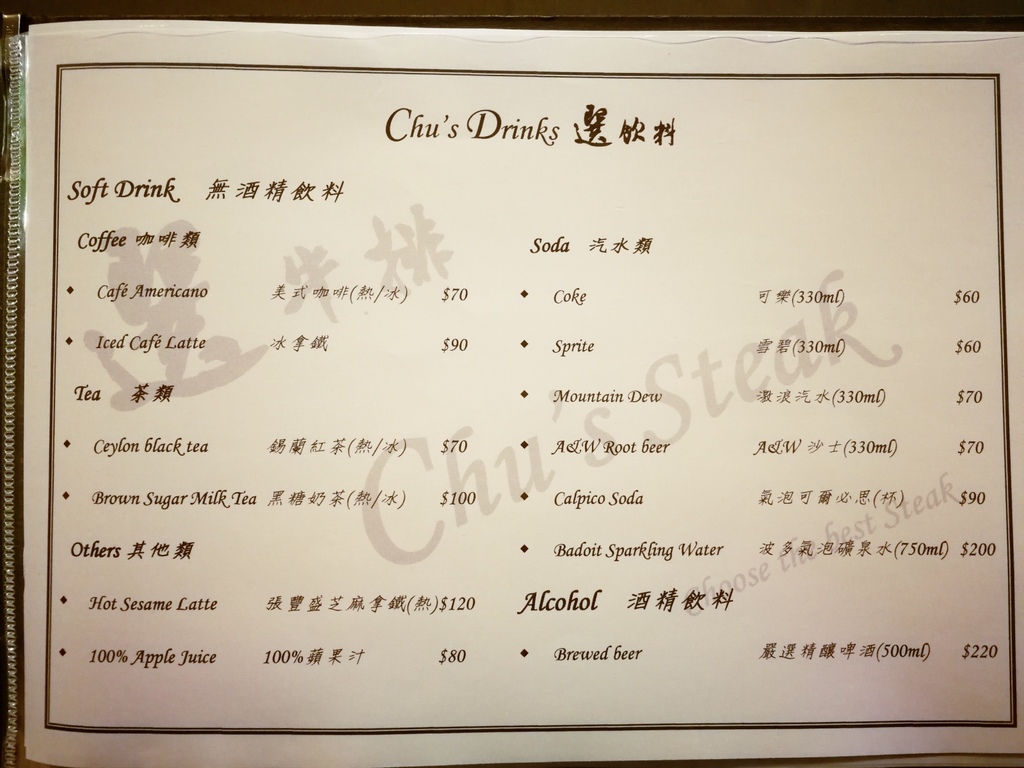 Chu's Drinks 選飲料
Soft Drink 無酒精飲料
Coffee 咖啡類
Café Americano 美式咖啡(熱/冰) $70
Iced Café Latte 冰拿鐵 $90
Tea 茶類
Ceylon black tea 錫蘭紅茶(熱/冰) $70
Brown Sugar Milk Tea 黑糖奶茶(熱/冰) $100
Others 其他類
Hot Sesame Latte 張豐盛芝麻拿鐵(熱)$120
100% Apple Juice 100%蘋果汁 $80
Soda 汽水類
Coke 可樂(330ml) $60
Sprite 雪碧(330ml) $60
Mountain Dew 激浪汽水(330ml) $70
A&W Root beer A&W 沙士(330ml) $70
Calpico Soda 氣泡可爾必思(杯) $90
Badoit Sparkling Water 波多氣泡礦泉水(750ml) $200
Alcohol 酒精飲料
Brewed beer 嚴選精釀啤酒(500ml) $220
選 牛排
Chu's Steak
Choose the best Steak